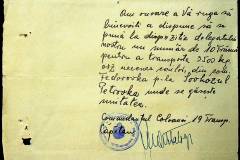 Am onoare a Vă ruga să
binevoiți a dispune să se
pună la dispoziția delegatului
nostru un număr de 10 Trăsuri
pentru a transporta 2500 kg.
orz necesar cailor, din satu
Fedorovka p.la Torhozul
Petrovka unde se găsește
unitatea.
Comandantul Coloanei, 19 Transp.
Căpitan